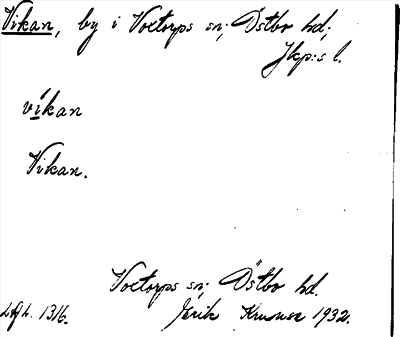 Vikan, by i Voxtorps sn; Östbo hd;
Jkp:s l.
víkan
Vikan.
Voxtorps sn; Östbo hd.
1316. Erik 1932.